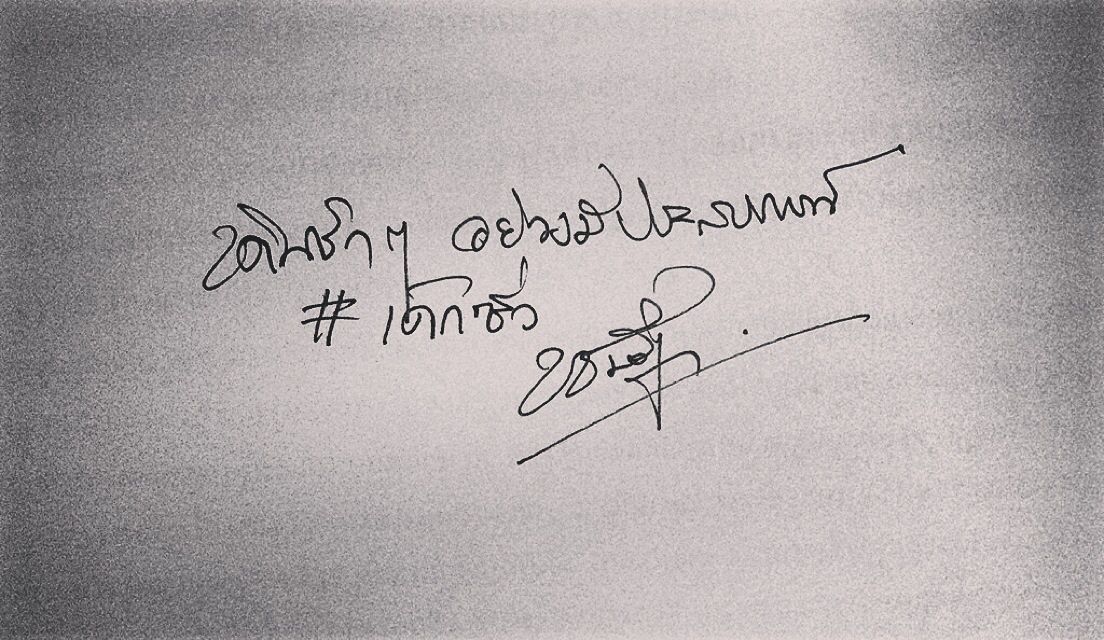 เดินช้า ๆ อย่างมีประสบการณ์
#เด็กซิ่ว